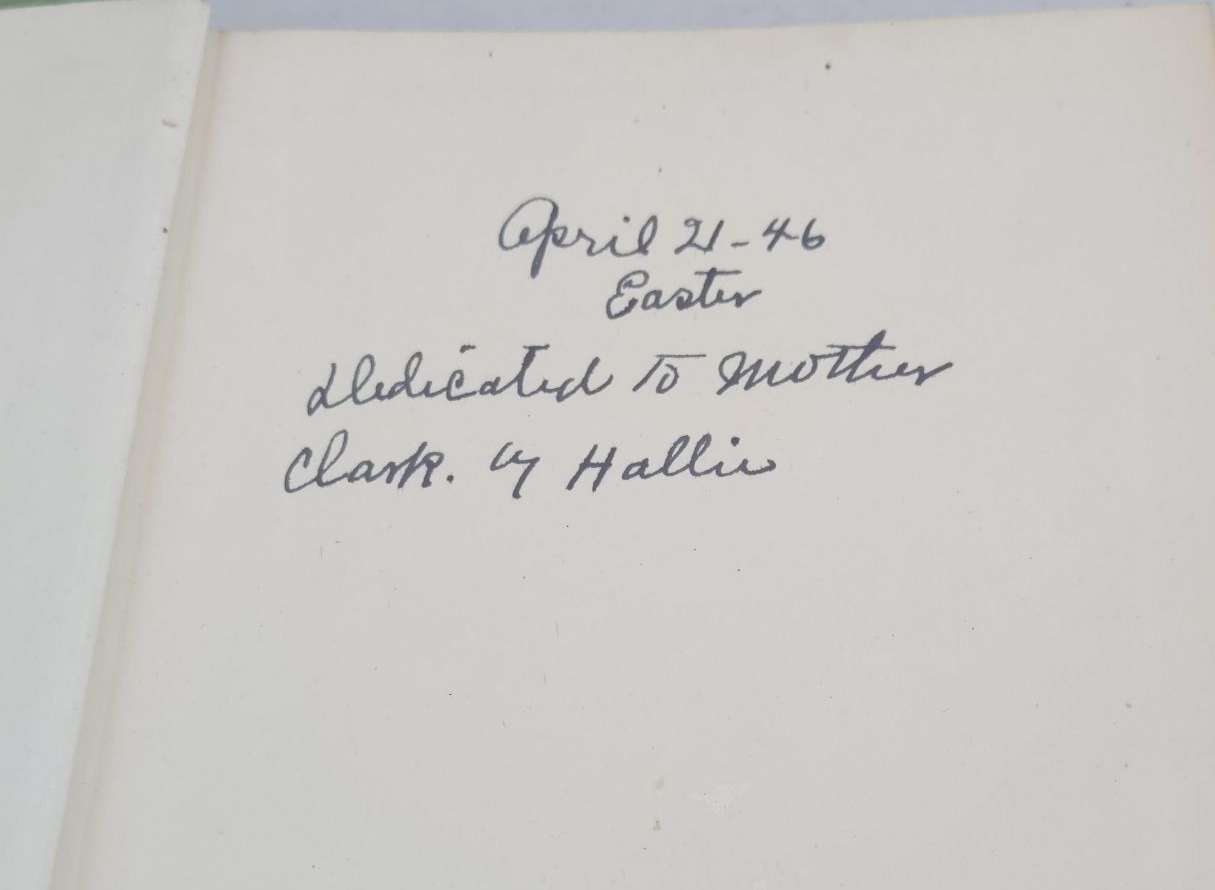 April 21-46
Easter
Dedicated to Mother
Clark. by Hallie